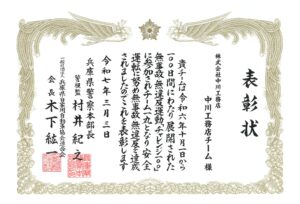 表彰状
株式会社中川工務店
中川工務店チーム 様
貴チームは令和六年十月一日から
一〇〇日間にわたり展開された
無事故無違反運動「チャレンジ一〇〇」
に参加されチーム一丸となり安全
運転に努め無事故無違反を達成
されましたのでこれを表彰します
令和七年三月三日
兵庫県警察本部長
警視監 村井紀之
会長 木下紘一